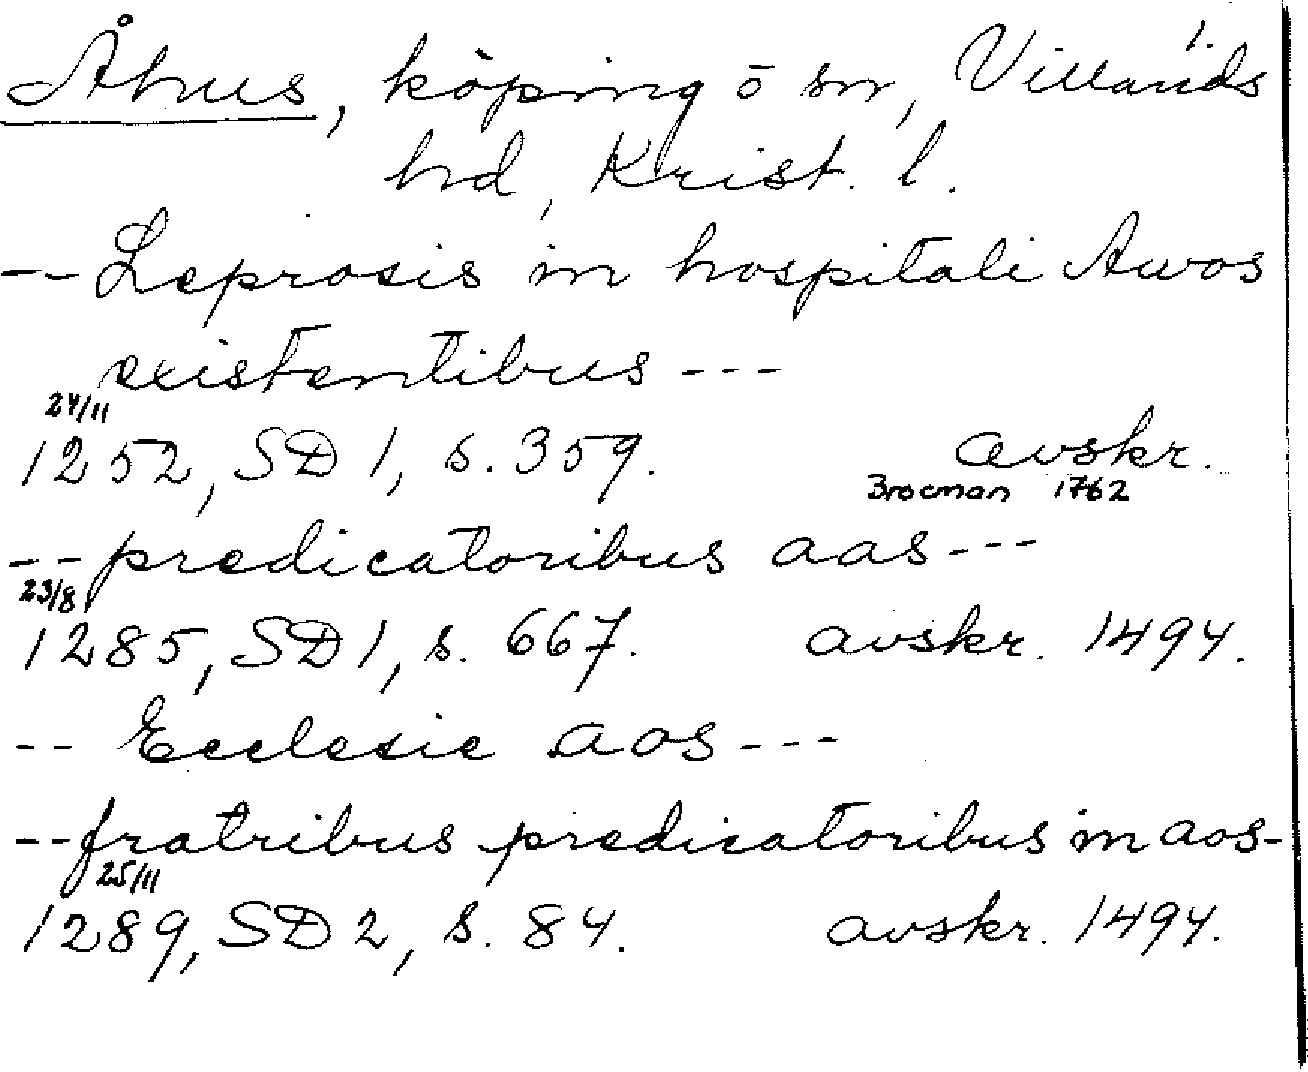 1.
Åhus, köping o sn, Villands
hd, Krist. l.
-- Leprosis in hospitali Awos
existentibus ---
24/11
1252, SD 1, s. 359. avskr.
Brocman 1762
-- predicatoribus aas ---
23/8
1285, SD 1, s. 667. avskr. 1494.
-- Ecclesie aos ---
-- fratribus predicatoribus in aos-
25/11
1289, SD 2, s. 84. avskr. 1494.